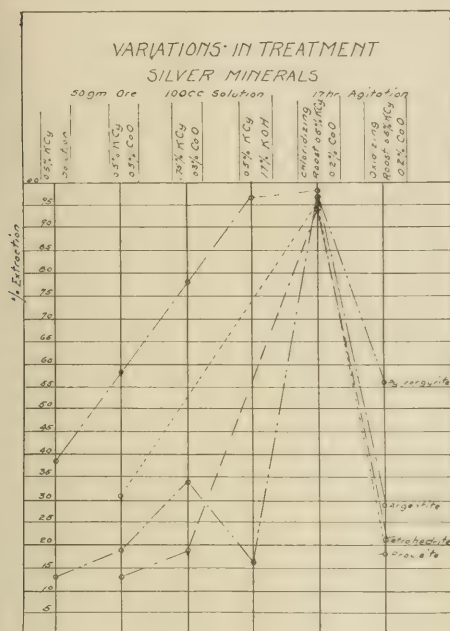 VARIATIONS IN TREATMENT
SILVER MINERALS
50gm Ore 100cc Solution 17hr Agitation
0.5% KCy
0.5% KCy
0.5% CaO
.75% KCy
0.3% CaO
0.5% KCy
1.7% KOH
Chloridizing
Roast 0.6% KCy
0.2% CaO
Oxidizing
Roast 0.6% KCy
0.2% CaO
% Extraction
95
90
85
80
75
70
65
60
55
50
45
40
35
30
25
20
15
10
5
Pyrargyrite
Argentite
Tetrahedrite
Proustite